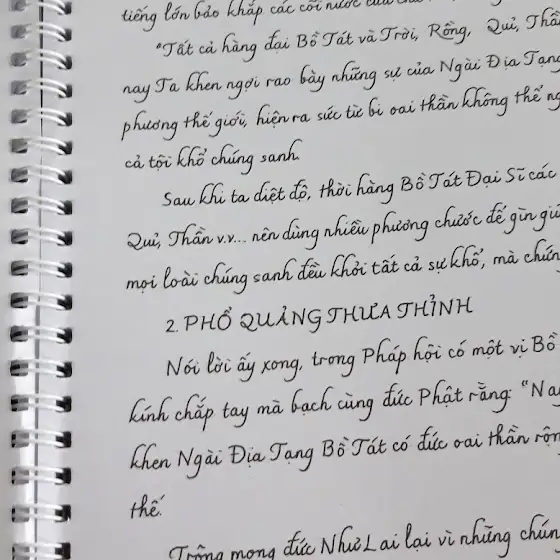 tiếng lớn bảo khắp các cõi nước
"Tất cả hàng đại Bồ Tát và Trời, Rồng, Quỉ, Thần
nay Ta khen ngợi rao bày những sự của Ngài Địa Tạng
phương thế giới, hiện ra sức từ bi oai thần không thể
cả tội khổ chúng sanh.
Sau khi ta diệt độ, thời hàng Bồ Tát Đại Sĩ các
Quỉ, Thần v.v... nên dùng nhiều phương chước để gìn giữ
mọi loài chúng sanh đều khỏi tất cả sự khổ, mà
2. PHỔ QUẢNG THƯA THỈNH
Nói lời ấy xong, trong Pháp hội có một vị Bồ
kính chắp tay mà bạch cùng đức Phật rằng: "Na
khen Ngài Địa Tạng Bồ Tát có đức oai thần
thế.
Trông mong đức Như Lai lại vì những